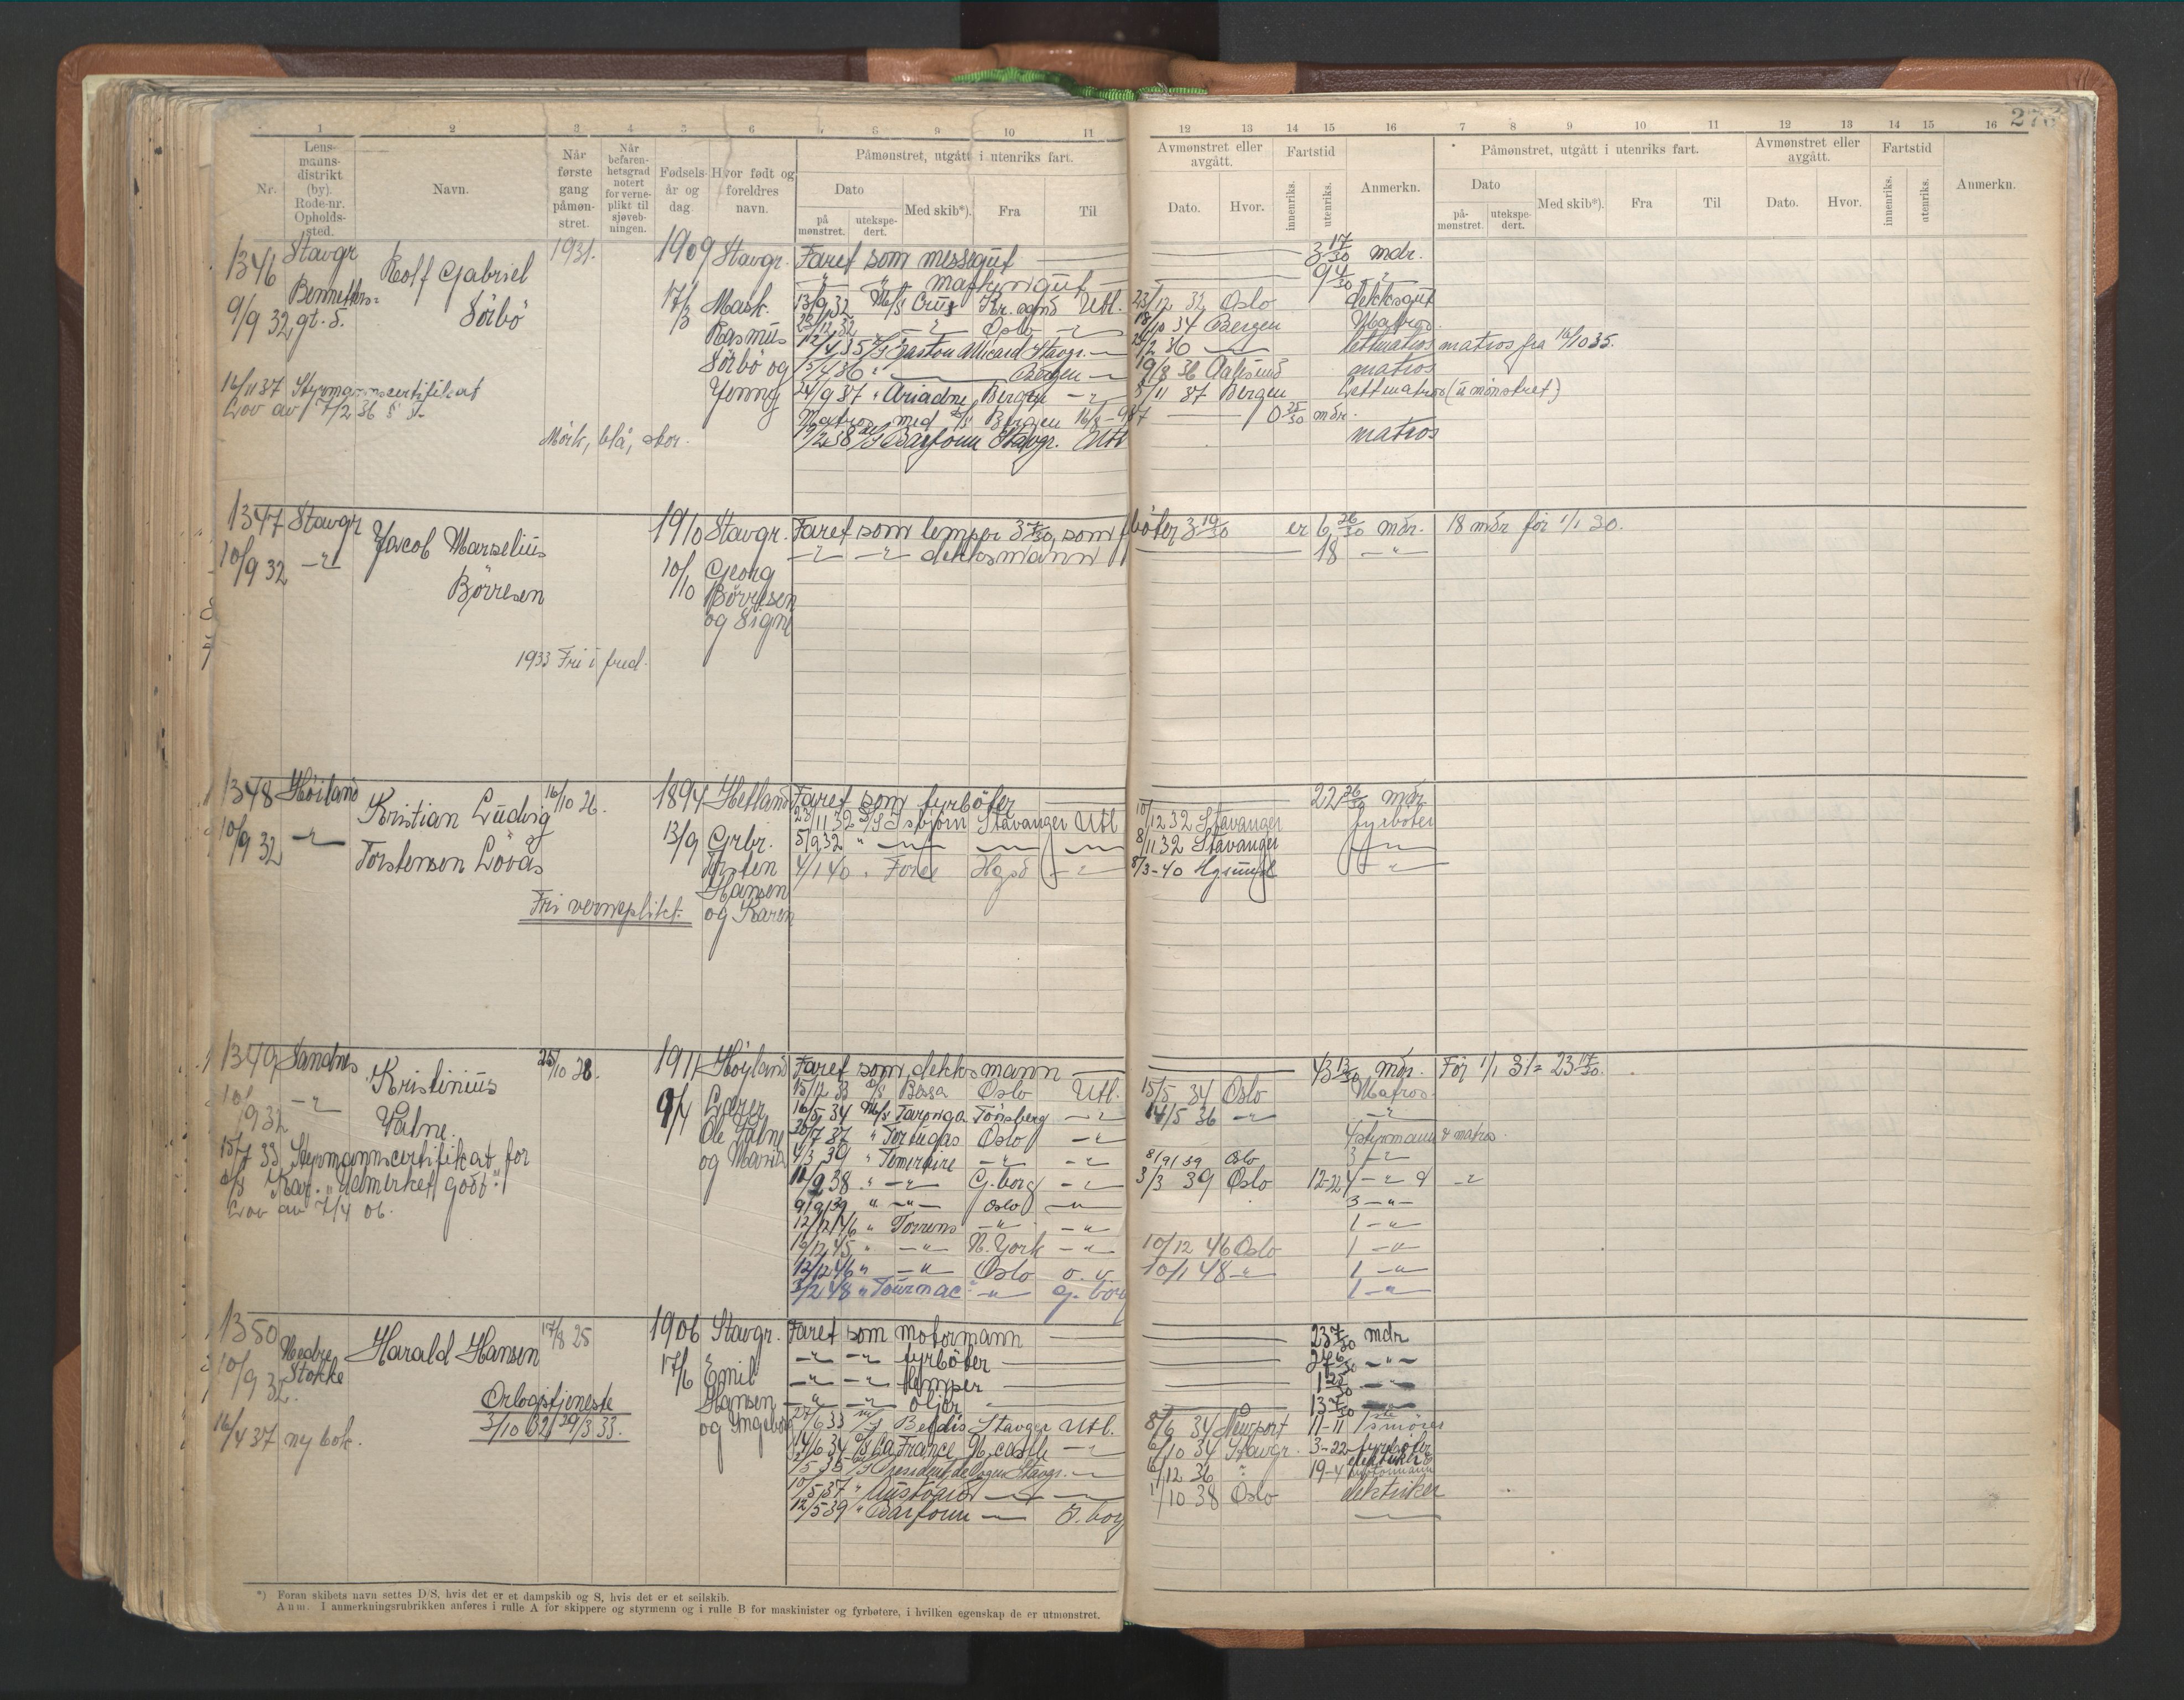 273
1 2 3 4 5 6 7 8 9 10 11
12 13 14 15 16 7 8 9 10 11 12 13 14 15 16
Nr.
Lens-
manns-
distrikt
(by).
Rode-nr.
Opholds-
sted.
Navn.
Når
første
gang
påmøn-
stret.
Når
befaren-
hetsgrad
notert
for verne-
plikt til
sjøveb-
ningen.
Fødsels-
år og
dag
Hvor født og
foreldres
navn.
Påmønstret, utgått i utenriks fart.
Dato
på
mønstret.
utekspe-
dert.
Med skib*).
Fra
Til
Avmønstret eller
avgått.
Dato.
Hvor.
Fartstid
innenriks.
utenriks.
Anmerkn.
Påmønstret, utgått i utenriks fart.
Dato
på-
mønstret.
utekspe-
dert.
Med skib*).
Fra
Til
Avmønstret eller
avgått.
Dato.
Hvor.
Fartstid
innenriks.
utenriks.
Anmerkn.
1346 Stavgr Rolf Gabriel Sörbö 1931. 1909 Stavgr.
9/9 32 gt. 5.
17/3 Mask.
Rasmus
Sörbö og
Jenny
16/11 37 Styrmannscertifikat
Lov av 7/2 36 § 5.
Mörk, blå, stor.
Faret som messegut 3 17/30 mdr.
" " maskingut 9 4/30 "
13/9 32 M/S Crux Kr. sand Utl. 23/12 32 Oslo dekksgut
23/12 32 " Oslo " 18/10 34 Bergen Matros
12/4 35 Gaston Micard Stavgr. 2/2 36 lettmatros matros fra 16/10 35.
15/4 36 " Bergen 19/8 36 Aalesund matros
24/9 37 " Ariadne Bergen " 5/11 37 Bergen Lettmatros (umönstret)
Matros med D/S Bergen 16/8 - 9/8 37 0 25/30 mdr.
19/2 38 M/S Barfonn Stavgr. Utl matros
1347 Stavgr Jacob Marselius Börresen 1910 Stavgr.
10/9 32 - " -
10/10 Georg
Börresen
og Signe
1933 Fri i fred.
Faret som lemper 3 7/30, som fböter 3 19/30 er 6 26/30 mdr. 18 mdr før 1/1 30.
- " - - " - dekksmann 18 - " -
1348 Höiland Kristian Ludvig Torstensen Lövås 16/10 26. 1894 Hetland
10/9 32 - " -
13/9 Grbr.
Torsten
Hansen
og Karen
Fri verneplikt.
Faret som fyrböter 22 26/30 mdr.
23/11 32 D/S Isbjörn Stavanger Utl 10/12 32 Stavanger fyrböter
5/9 32 " - " - 8/11 32 Stavanger - " -
4/1 40 " Fore Hgsd - " - 8/3-40 Hgsund - " -
1349 Sandnes Kristinius Valne 25/10 28. 1911 Höyland
10/9 32 - " -
9/4 Lærer
Ole Valne
og Maria
15/7 33 Styrmannscertifikat for
Kar. "Udmerket godt".
Lov av 7/4 06.
Faret som dekksmann 43 13/30 mdr. För 1/1 31= 23 14/30.
15/12 33 D/S Bessa Oslo Utl. 15/5 34 Oslo Matros
16/5 34 M/S Taronga Tönsberg - " - 14/5 36 - " - - " -
20/7 37 " Tortugas Oslo - " - 4 styrmann & matros.
4/3 39 " Temeraire - " - - " - 8/9 39 Oslo 3 - " -
10/9 38 " - " - G.borg - " - 3/3 39 Oslo 12-22 4 - " - & - " -
9/9 39 " - " - Oslo - " - 3 - " -
12/12 46 " Torrens - " - - " - 1 - " -
16/12 45 " - " - N. York - " - 10/12 46 Oslo 1 - " -
12/12 46 " - " - Oslo o. v. 10/1 48 - " - 1 - " -
3/2 48 " Tournac - " - G. borg 1 - " -
1350 Nedre Stokke Harald Hansen 17/8 25 1906 Stavgr.
10/9 32.
17/6 Emil
Hansen
og Ingeborg
Orlogstjeneste
3/10 32 29/3 33.
16/4 37 ny bok.
Faret som motormann 23 7/30 mdr
- " - - " - fyrböter 27 6/30 - " -
- " - - " - lemper 1 25/30 - " -
- " - - " - oljer 13 7/30 - " -
27/6 33 M/S Beldis Stavger Utl. 8/6 34 Newport 11-11 smörer
14/6 34 D/S La France N. castle - " - 6/10 34 Stavgr. 3-22 fyrböter
/5 35 M/S President de Vogue Stavgr. /12 36 " 19-4 elektriker motormann
10/5 37 " Austvard /10 38 Oslo elektriker
12/5 39 " Barfonn G. borg
*) Foran skibets navn settes D/S, hvis det er et dampskib og S, hvis det er et seilskib.
Anm. I anmerkningsrubrikken anføres i rulle A for skippere og styrmenn og i rulle B for maskinister og fyrbøtere, i hvilken egenskap de er utmønstret.